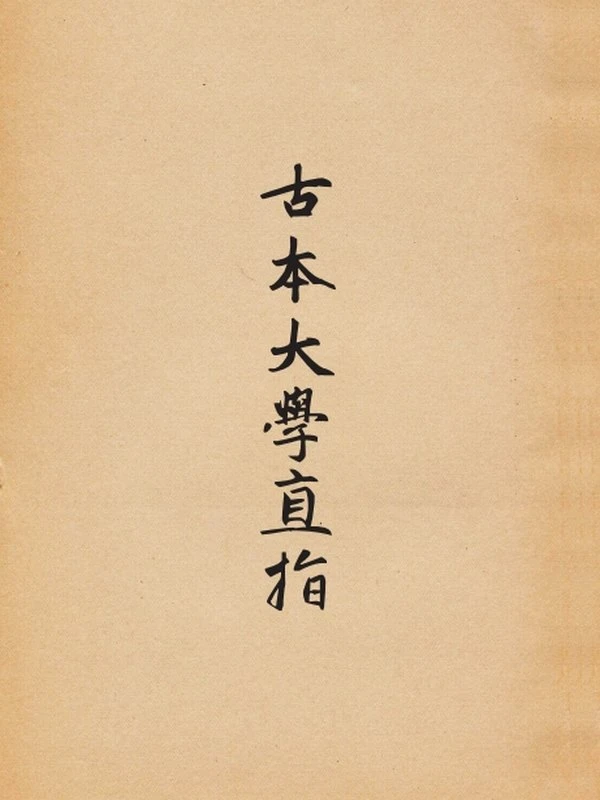 古本大學直指